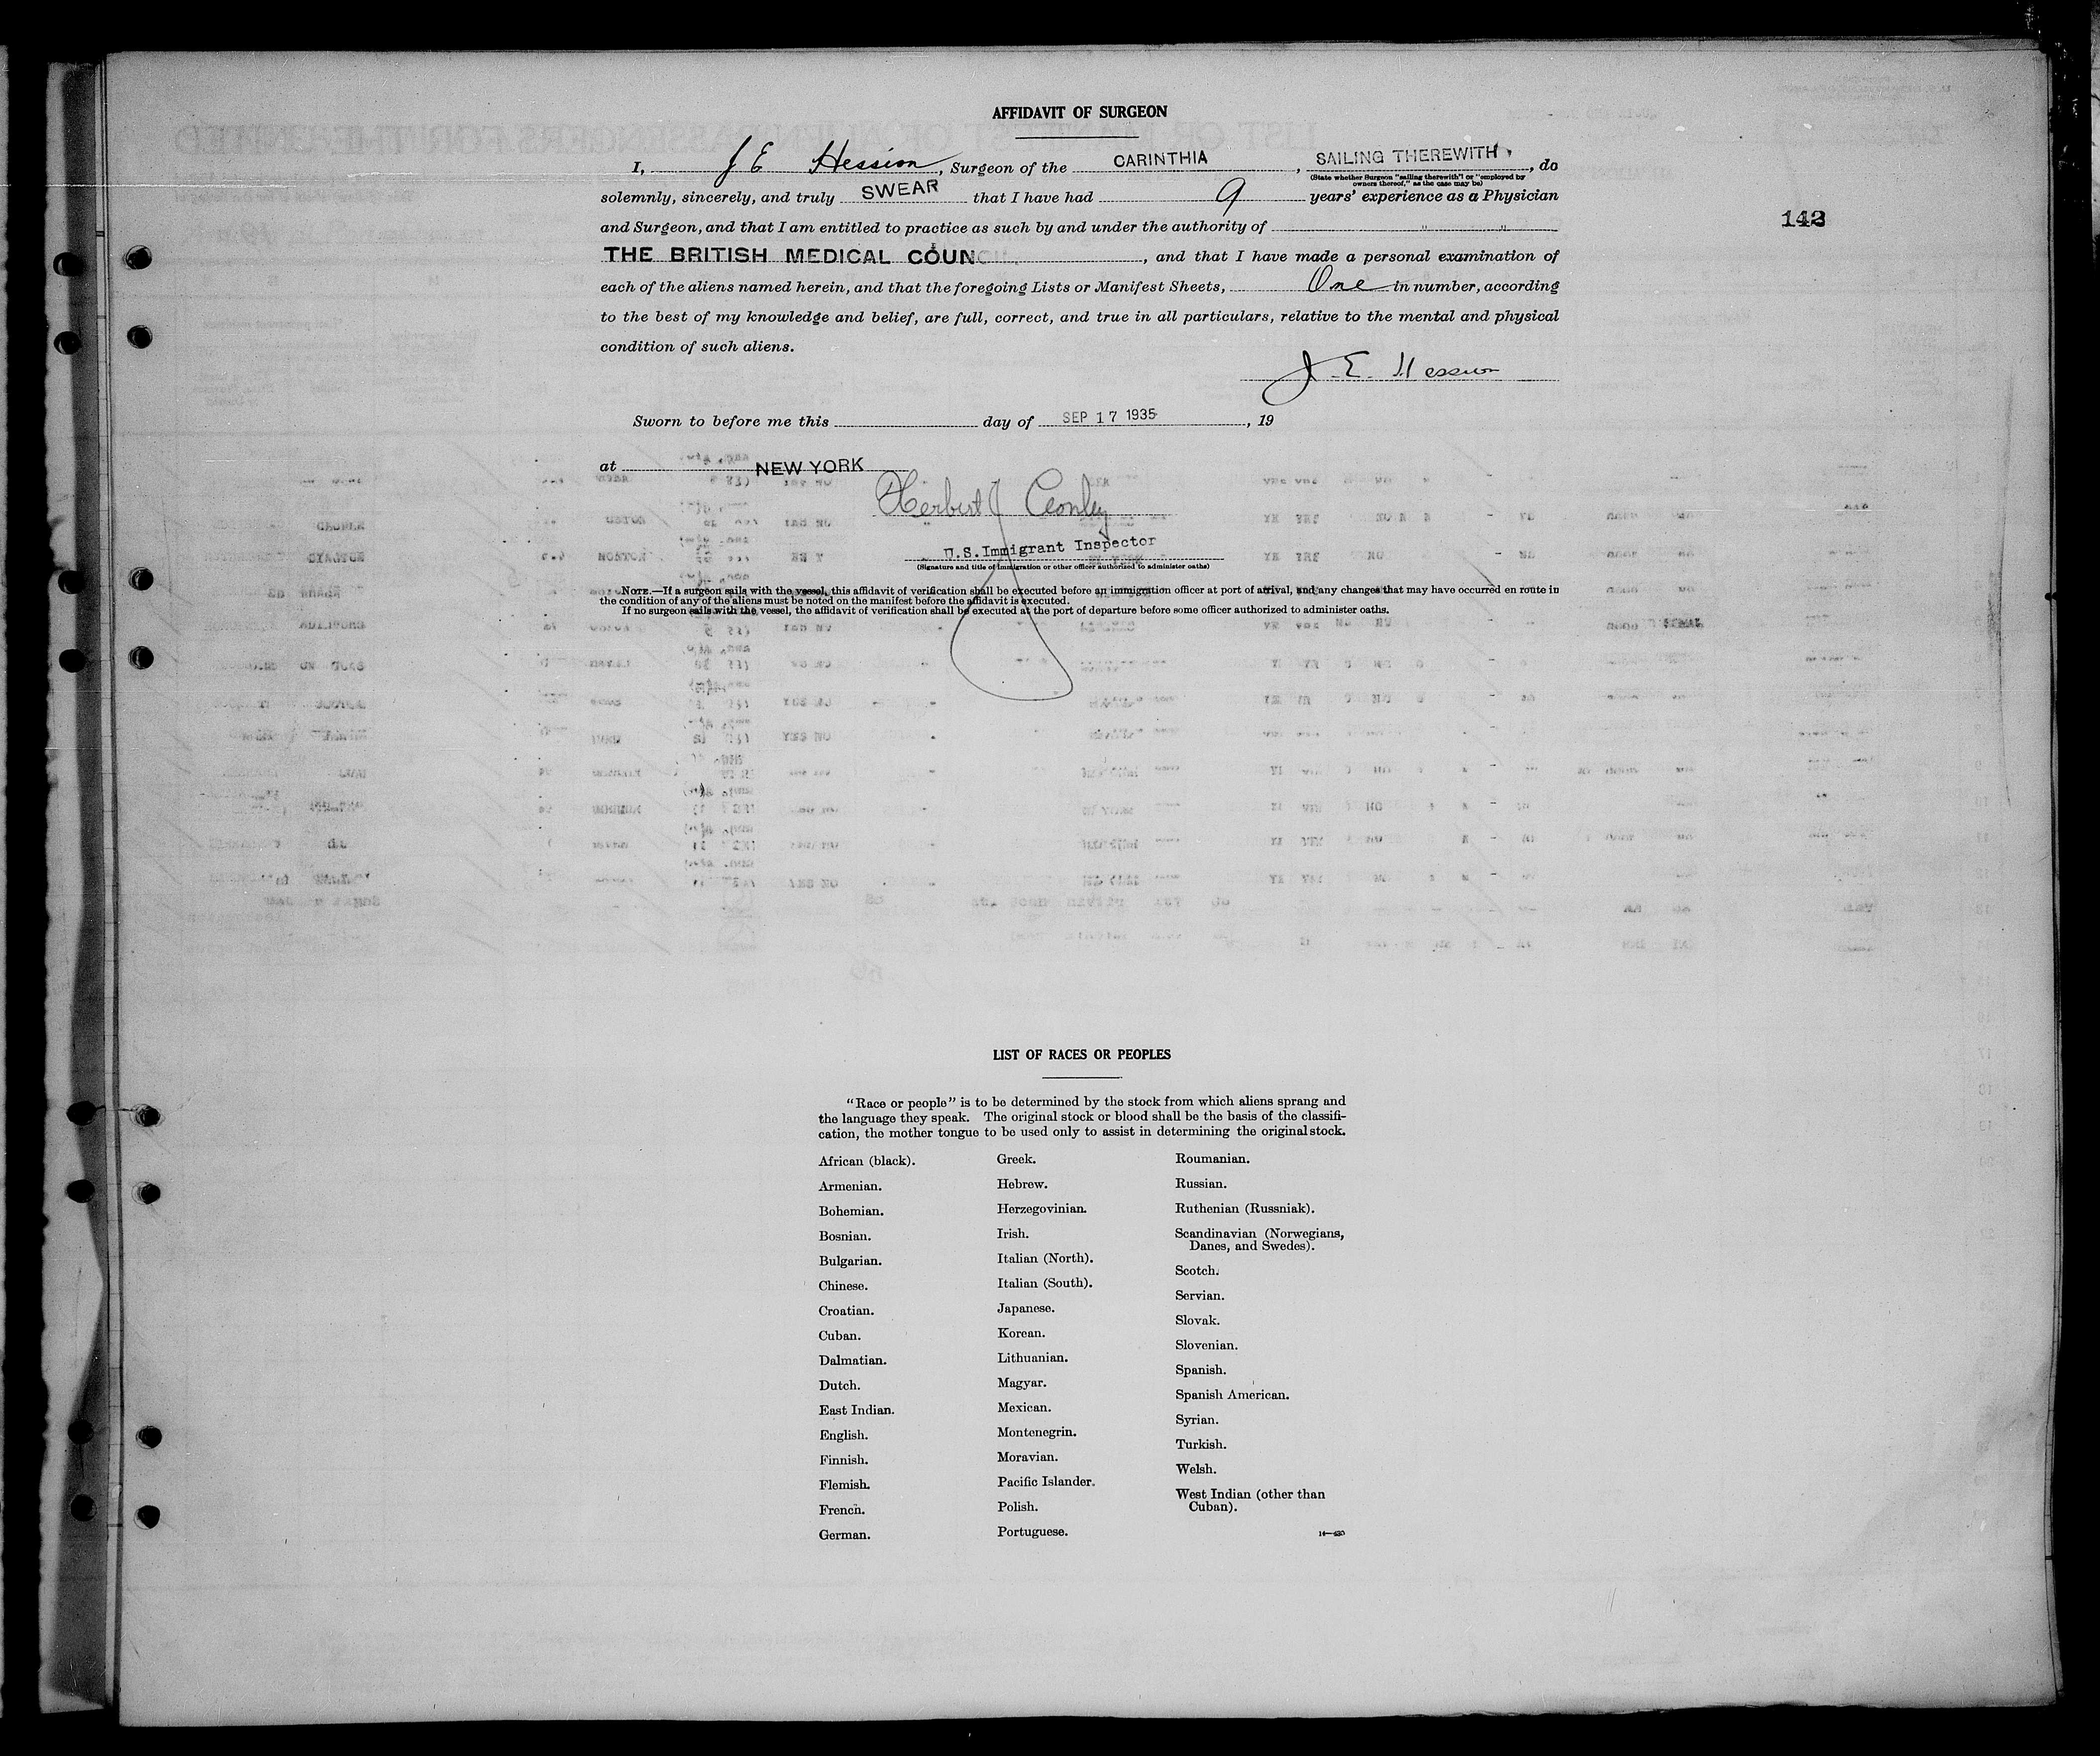 AFFIDAVIT OF SURGEON
I, J E Hession, Surgeon of the CARINTHIA, SAILING THEREWITH, do
(State whether Surgeon "sailing therewith" or "employed by
owners thereof," as the case may be)
solemnly, sincerely, and truly SWEAR that I have had 9 years' experience as a Physician
142
and Surgeon, and that I am entitled to practice as such by and under the authority of
THE BRITISH MEDICAL COUNCIL, and that I have made a personal examination of
each of the aliens named herein, and that the foregoing Lists or Manifest Sheets, One in number, according
to the best of my knowledge and belief, are full, correct, and true in all particulars, relative to the mental and physical
condition of such aliens.
J. E. Hession
Sworn to before me this day of SEP 17 1935, 19
at NEW YORK
Herbert J
U.S. Immigrant Inspector
(Signature and title of immigration or other officer authorized to administer oaths)
NOTE.—If a surgeon sails with the vessel, this affidavit of verification shall be executed before an immigration officer at port of arrival, and any changes that may have occurred en route in
the condition of any of the aliens must be noted on the manifest before the affidavit is executed.
If no surgeon sails with the vessel, the affidavit of verification shall be executed at the port of departure before some officer authorized to administer oaths.
LIST OF RACES OR PEOPLES
"Race or people" is to be determined by the stock from which aliens sprang and
the language they speak. The original stock or blood shall be the basis of the classifi-
cation, the mother tongue to be used only to assist in determining the original stock.
African (black).
Armenian.
Bohemian.
Bosnian.
Bulgarian.
Chinese.
Croatian.
Cuban.
Dalmatian.
Dutch.
East Indian.
English.
Finnish.
Flemish.
French.
German.
Greek.
Hebrew.
Herzegovinian.
Irish.
Italian (North).
Italian (South).
Japanese.
Korean.
Lithuanian.
Magyar.
Mexican.
Montenegrin.
Moravian.
Pacific Islander.
Polish.
Portuguese.
Roumanian.
Russian.
Ruthenian (Russniak).
Scandinavian (Norwegians,
Danes, and Swedes).
Scotch.
Servian.
Slovak.
Slovenian.
Spanish.
Spanish American.
Syrian.
Turkish.
Welsh.
West Indian (other than
Cuban).